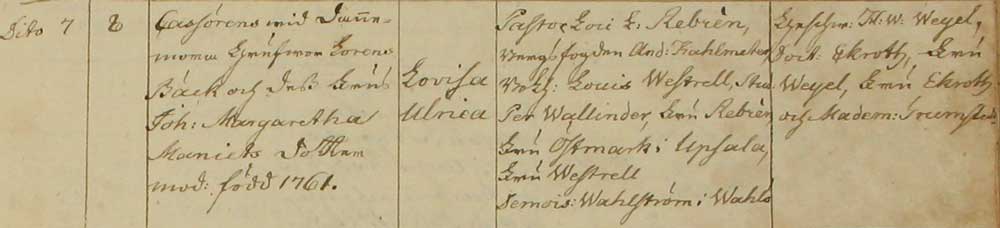 Dito 7 8
Cassörens wid Danne-
mora Grufwor Lorens
Bäck och dess Frus
Joh: Margaretha
Maniets Dotter
mod: född 1761.
Lovisa
Ulrica
Pastor Loci L: Rebrèn,
And:
Louis Westrell, Stud
Per Wallinder, Fru Rebrèn
Fru Ostmark i Upsala,
Fru Westrell
Demois: Wahlström i Wahlö
H: W: Weyel,
Doct: Ekroth, Fru
Weyel, Fru Ekroth
och Madem: